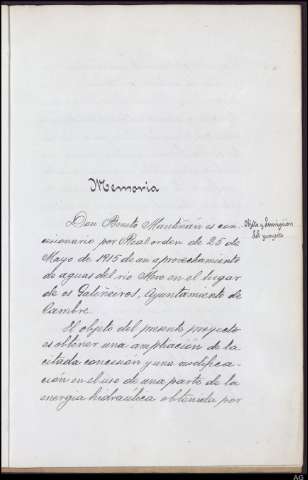 Memoria
Don Benito Mantiñán es con-
cesionario por Real orden de 25 de
Mayo de 1915 de un aprovechamiento
de aguas del río Mero en el lugar
de os Gaiteiros, Ayuntamiento de
Cambre.
El objeto del presente proyecto
es obtener una ampliación de la
citada concesión y una modifica-
ción en el uso de una parte de la
energía hidráulica obtenida por
Objeto y
del proyecto
AG